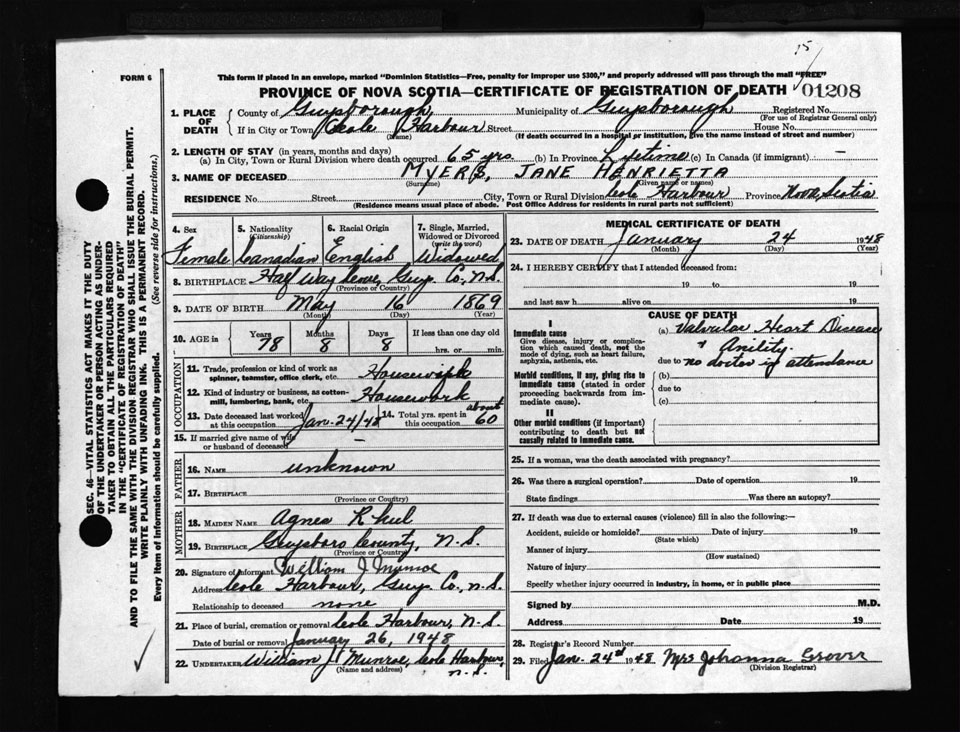 15
FORM 6
This form if placed in an envelope, marked "Dominion Statistics—Free, penalty for improper use $300," and properly addressed will pass through the mail "FREE"
PROVINCE OF NOVA SCOTIA—CERTIFICATE OF REGISTRATION OF DEATH 01208
1. PLACE OF DEATH
County of Guysborough Municipality of Guysborough Registered No.
(For use of Registrar General only)
If in City or Town Cole Harbour Street House No.
(Name) (If death occurred in a hospital or institution, give the name instead of street and number)
2. LENGTH OF STAY (in years, months and days)
(a) In City, Town or Rural Division where death occurred 65 yrs (b) In Province Lifetime (c) In Canada (if immigrant) —
3. NAME OF DECEASED MYERS, JANE HENRIETTA
(Surname) (Given name or names)
RESIDENCE No. Street City, Town or Rural Division Cole Harbour Province Nova Scotia
(Residence means usual place of abode. Post Office Address for residents in rural parts not sufficient)
4. Sex 5. Nationality (Citizenship) 6. Racial Origin 7. Single, Married, Widowed or Divorced (write the word)
Female Canadian English Widowed
8. BIRTHPLACE Half Way Cove, Guy. Co., N.S.
(Province or Country)
9. DATE OF BIRTH May 16 1869
(Month) (Day) (Year)
10. AGE in Years Months Days If less than one day old
78 8 8 hrs. or min.
OCCUPATION
11. Trade, profession or kind of work as spinner, teamster, office clerk, etc. Housework
12. Kind of industry or business, as cotton-mill, lumbering, bank, etc. Housework
13. Date deceased last worked at this occupation Jan. 24/48 14. Total yrs. spent in this occupation about 60
15. If married give name of wife or husband of deceased —
FATHER
16. NAME unknown
17. BIRTHPLACE
(Province or Country)
MOTHER
18. MAIDEN NAME Agnes
19. BIRTHPLACE Guysboro County, N.S.
(Province or Country)
20. Signature of informant William J. Munroe
Address Cole Harbour, Guy. Co., N.S.
Relationship to deceased none
21. Place of burial, cremation or removal Cole Harbour, N.S.
Date of burial or removal January 26, 1948
22. UNDERTAKER William J. Munroe, Cole Harbour, N.S.
(Name and address)
MEDICAL CERTIFICATE OF DEATH
23. DATE OF DEATH January 24 1948
(Month) (Day) (Year)
24. I HEREBY CERTIFY that I attended deceased from:
19 to 19
and last saw h alive on 19
CAUSE OF DEATH
I
Immediate cause
Give disease, injury or complication which caused death, not the mode of dying, such as heart failure, asphyxia, asthenia, etc.
(a) Valvular Heart Disease
due to no doctor in attendance
Morbid conditions, if any, giving rise to immediate cause (stated in order proceeding backwards from immediate cause).
(b)
due to
(c)
II
Other morbid conditions (if important) contributing to death but not causally related to immediate cause.
25. If a woman, was the death associated with pregnancy?
26. Was there a surgical operation? Date of operation 19
State findings Was there an autopsy?
27. If death was due to external causes (violence) fill in also the following:—
Accident, suicide or homicide? Date of injury 19
(State which)
Manner of injury
(How sustained)
Nature of injury
Specify whether injury occurred in industry, in home, or in public place
Signed by M.D.
Address Date 19
28. Registrar's Record Number
29. Filed Jan. 24th 1948 Mrs Johanna Grover
(Division Registrar)
SEC. 46—VITAL STATISTICS ACT MAKES IT THE DUTY
OF THE UNDERTAKER OR PERSON ACTING AS UNDER-
TAKER TO OBTAIN ALL THE PARTICULARS REQUIRED
IN THE "CERTIFICATE OF REGISTRATION OF DEATH"
AND TO FILE THE SAME WITH THE DIVISION REGISTRAR WHO SHALL ISSUE THE BURIAL PERMIT.
WRITE PLAINLY WITH UNFADING INK. THIS IS A PERMANENT RECORD.
Every item of information should be carefully supplied. (See reverse side for instructions.)